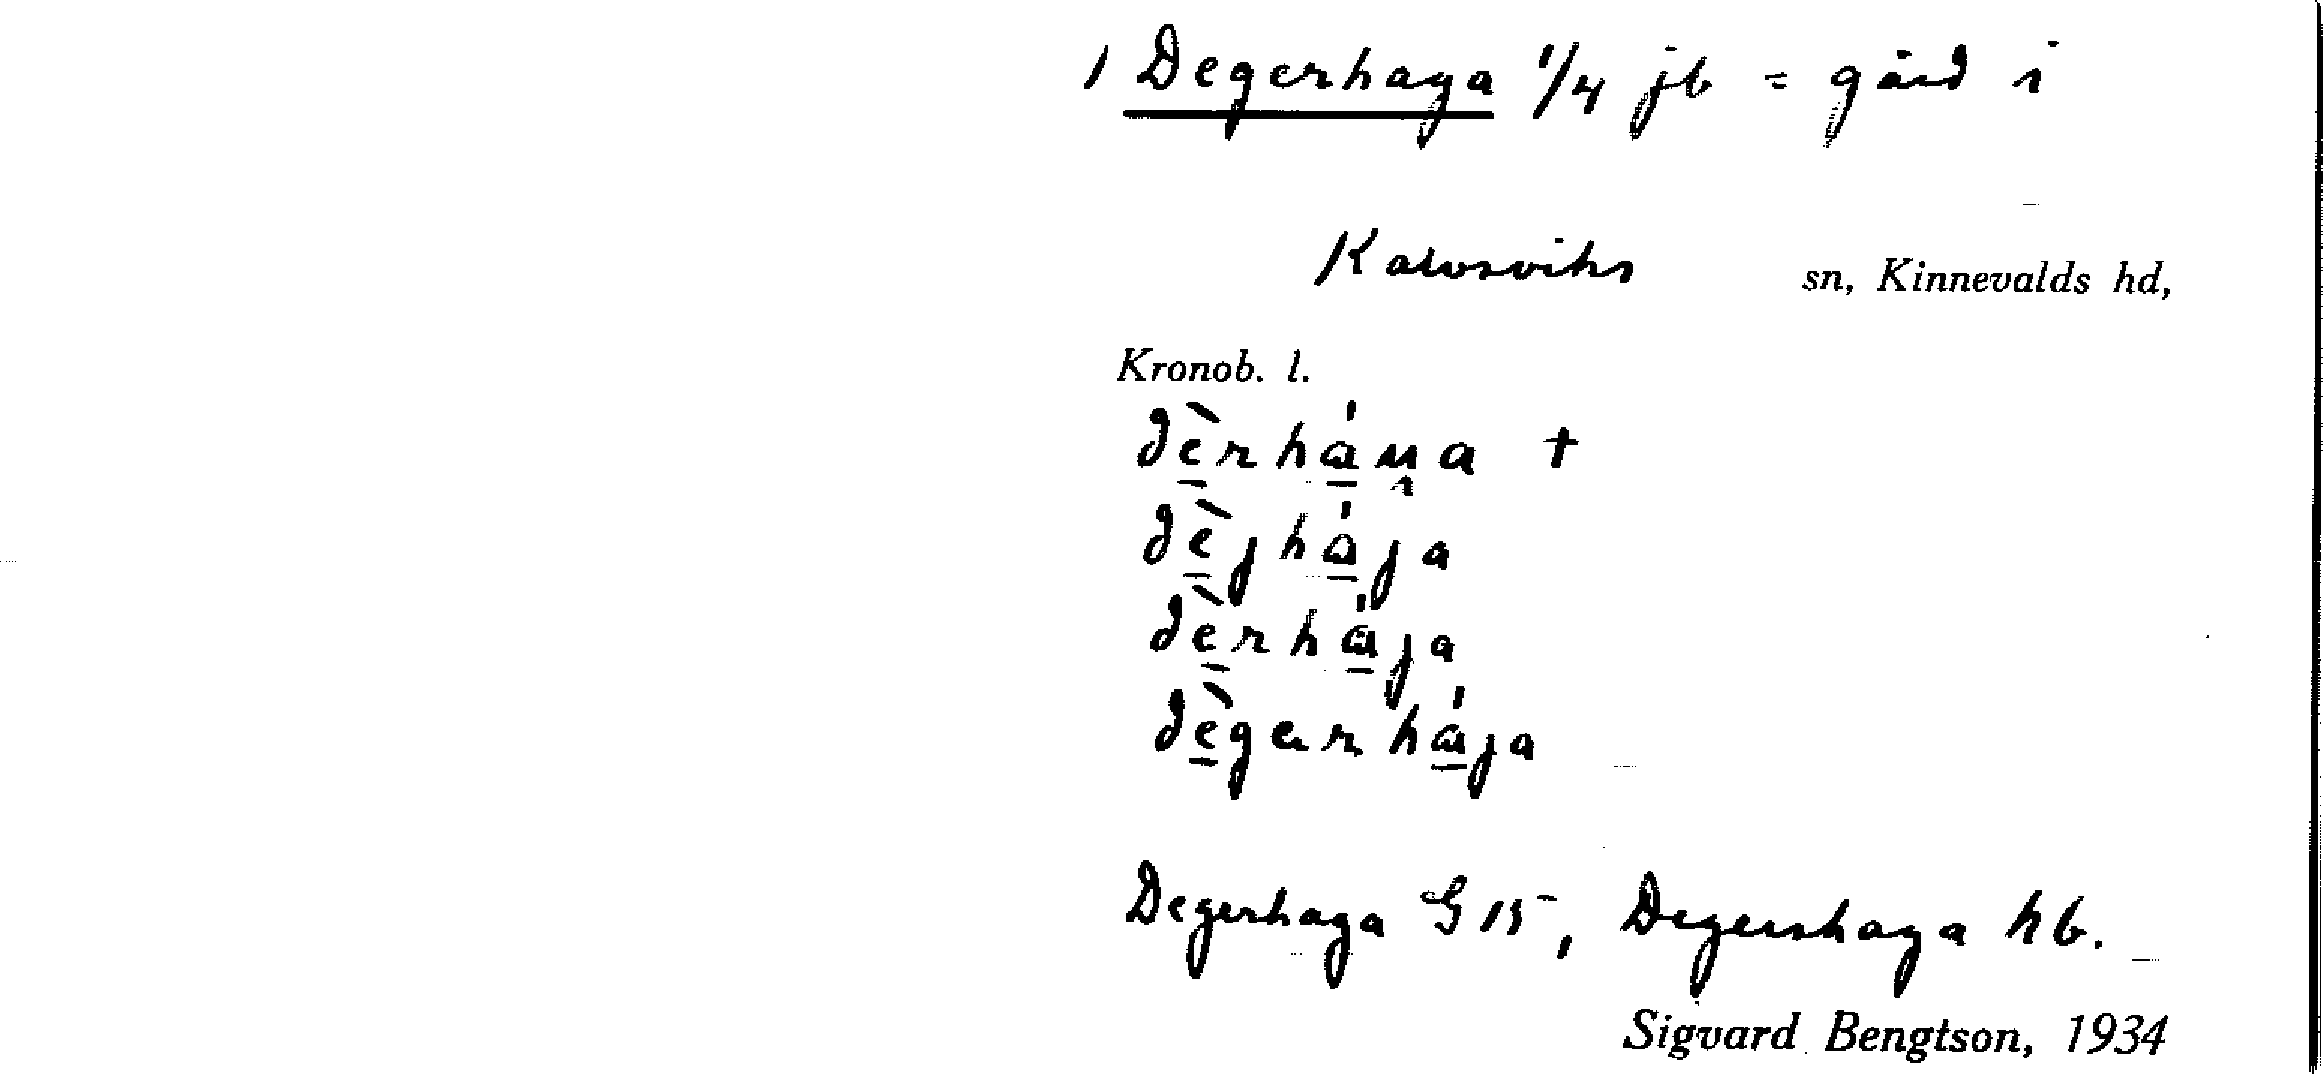 1 Degerhaga 1/4 jb = gård i
Kalvsviks sn, Kinnevalds hd,
Kronob. l.
dèrháųa †
dèjhája
dèrhája
dègerhája
Degerhaga G 15, Degershaga hb.
Sigvard Bengtson, 1934